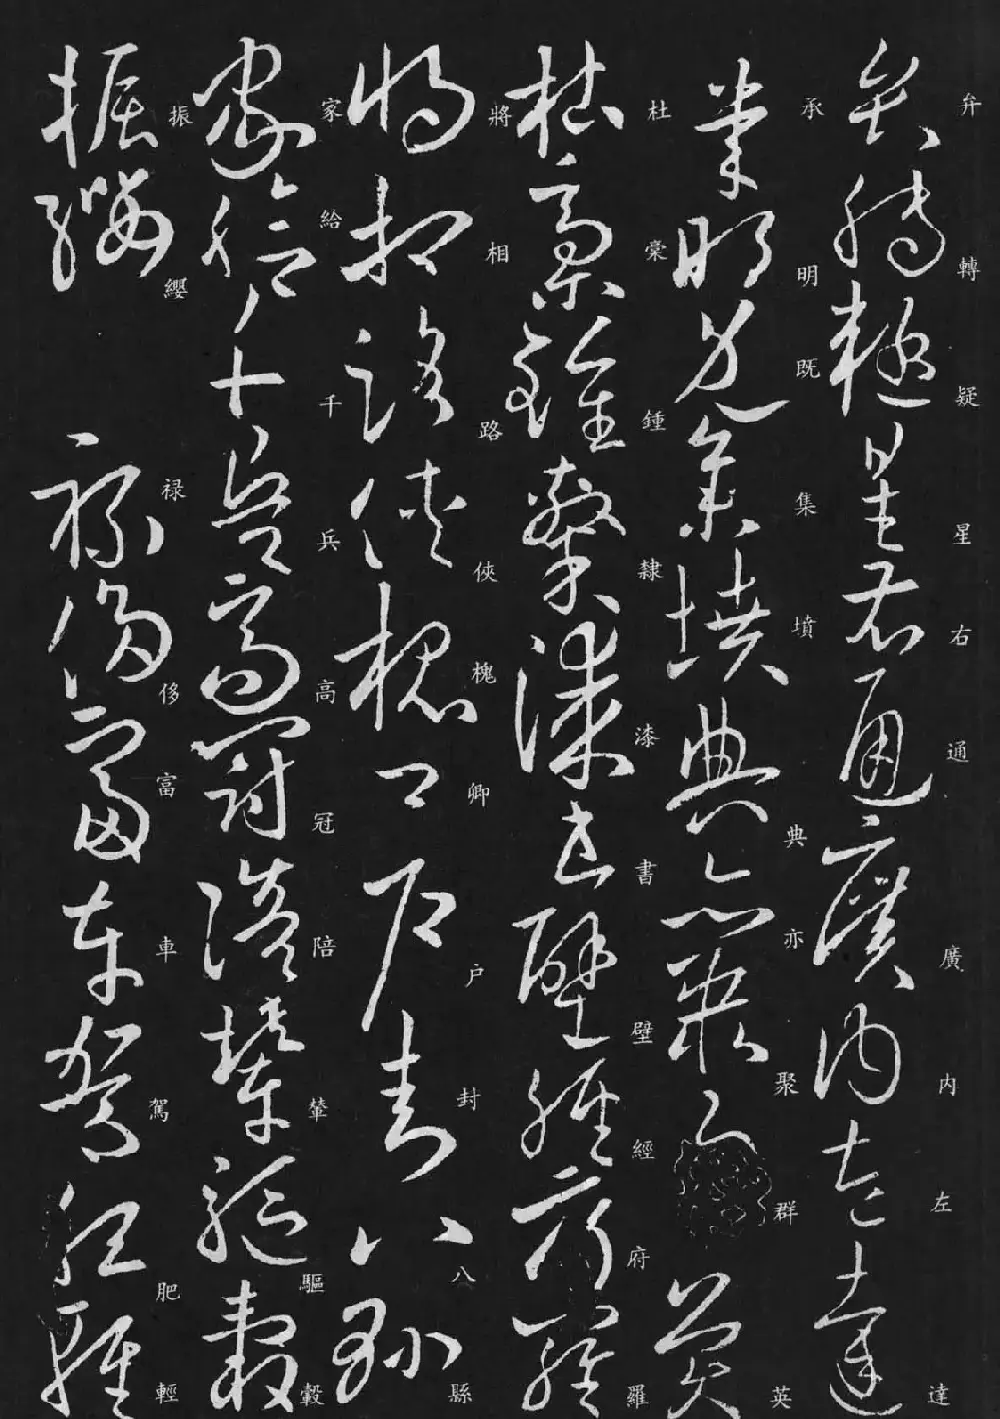 弁轉疑星右通廣内左達
承明既集墳典亦聚群英
杜稾鍾隸漆書壁經府羅
將相路俠槐卿户封八縣
家給千兵高冠陪輦驅轂
振纓禄侈富車駕肥輕